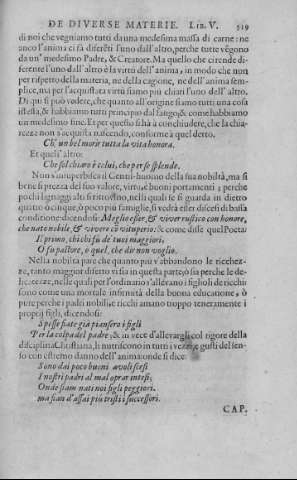 DE DIVERSE MATERIE. LIB. V. 519
di noi che vegniamo tuti da una medesima massa di carne: ne
anco l'anima ci fà diferẽti l'uno dall'altro, perche tutte vẽgono
da un' medesimo Padre, & Creatore. Ma quello che ci rende di-
ferente l'uno dall'altro è la virtù dell'anima, in modo che non
per rispetto della materia, ne della cagione, ne dell'anima sem-
plice, ma per l'acquistata virtù siamo più chiari l'uno dell'altro.
Di quì si può vedere, che quanto all'origine siamo tutti una cosa
istessa, & habbiamo tutti principio dal fango, & come habbiamo
un medesimo fine. Et per questo si hà à conchiudere, che la chia-
rezza non s'acquista nascendo, conforme à quel detto.
Ch' un bel morir tutta la vita honora.
Et quell' altro:
Che sol chiaro è colui, che per se splende.
Non s'insuperbisca il Gentil-huomo della sua nobiltà, ma sì
bene si prezza del suo valore, virtù, e buoni portamenti; perche
pochi lignaggi alti si ritrovano, nelli quali se si guarda in dietro
quatro ò cinque, ò poco più famiglie, si vedrà esser discesi di bassa
conditione dicendosi: Meglio esser, & viver rustico con honore,
che nato nobile, & vivere cõ vituperio: & come disse quel Poeta:
Il primo, chi chi fù de' tuoi maggiori,
O fu pastore, ò quel, che dir non voglio.
Nella nobiltà pare che quanto più s'abbandono le ricchez-
ze, tanto maggior difetto vi sia in questa parte; ò sia perche le de-
licatezze, nelle quali per l'ordinario s'allevano i figlioli de ricchi
sono come una mortale infirmità della buona educatione, ò
pure perche i padri nobili, e ricchi amano troppo teneramente i
proprij figli, dicendosi:
Spesse fiate già piansero i figli
Per la colpa del padre; & in vece d'allevargli col rigore della
disciplina Christiana, li nutriscono in tutti i vezzi, e gusti del sen-
so con estremo danno dell'anima: onde si dice:
Sono dai poco buoni avoli scesi
I nostri padri al mal oprar intesi;
Onde siam nati noi figli peggiori.
ma sian d'assai più tristi i successori.
CAP.